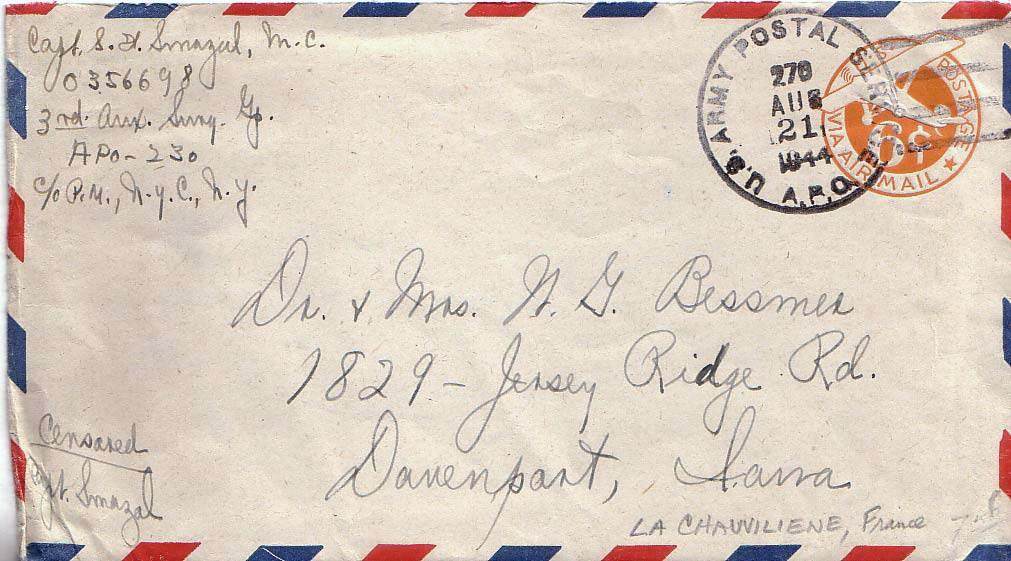 Capt. S. F. Smazal, M.C.
0356698
3rd. Aux. Surg. Gp.
APO-230
c/o P.M., N.Y.C., N.Y.
U.S. ARMY POSTAL SERVICE
278
AUG
21
1944
A.P.O.
POSTAGE
6¢
VIA AIR MAIL
Dr. & Mrs. W. G. Bessmer
1829 - Jersey Ridge Rd.
Davenport, Iowa
Censored
Capt. Smazal
LA CHAUVILIENE, France